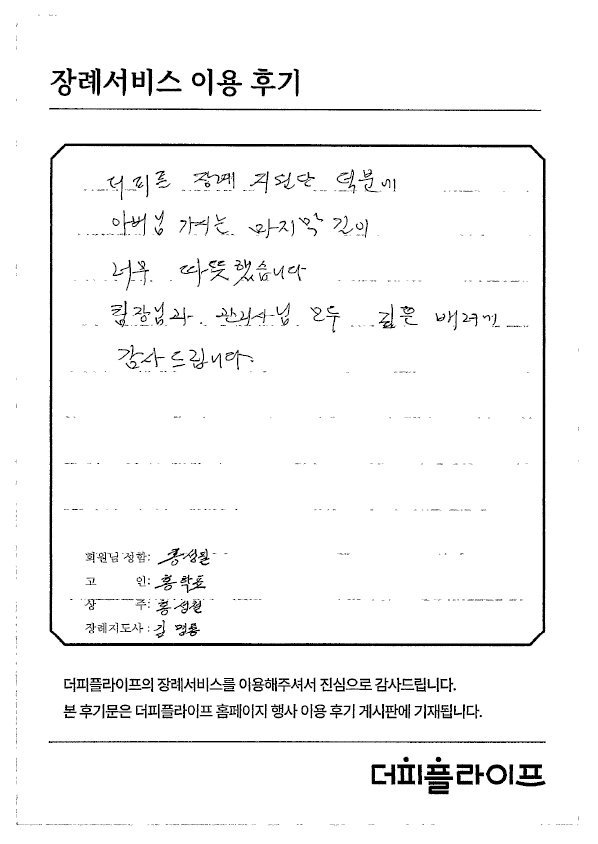 장례서비스 이용 후기
더피플 장례 지원단 덕분에
아버님 가시는 마지막 길이
너무 따뜻했습니다
팀장님과 관리사님 모두 깊은 배려에
감사드립니다.
회원님 성함: 홍성철
고 인: 홍학표
상 주: 홍성철
장례지도사: 김명룡
더피플라이프의 장례서비스를 이용해주셔서 진심으로 감사드립니다.
본 후기문은 더피플라이프 홈페이지 행사 이용 후기 게시판에 기재됩니다.
더피플라이프